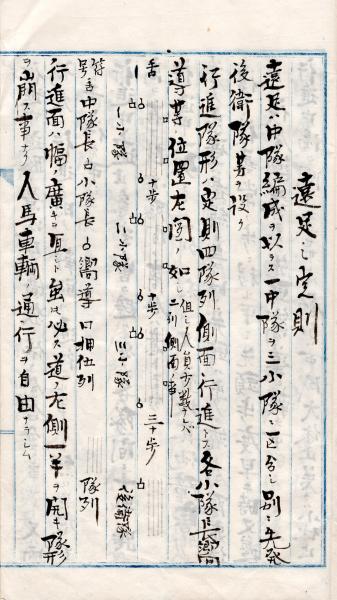 遠足之定則
遠足ハ中隊編成ヲ以テス一中隊ヲ三小隊ニ区分シ別ニ先発
後衛隊等ヲ設ク
行進隊形ハ定則四隊列側面行進トス各小隊長嚮
導等位置左図ノ如シ但シ人員少数ナレハ二列側面ノ事
一小隊 十歩 二小隊 十歩 三小隊 三十歩 後衛隊
符号 中隊長 小隊長 嚮導 押伍列 隊列
行進面ハ幅ノ廣キヲ宜シトス虽𪜈必ス道ノ左側一半ヲ開キ隊形
ヲ崩ス事ナク人馬車輌ノ通行ヲ自由ナラシム